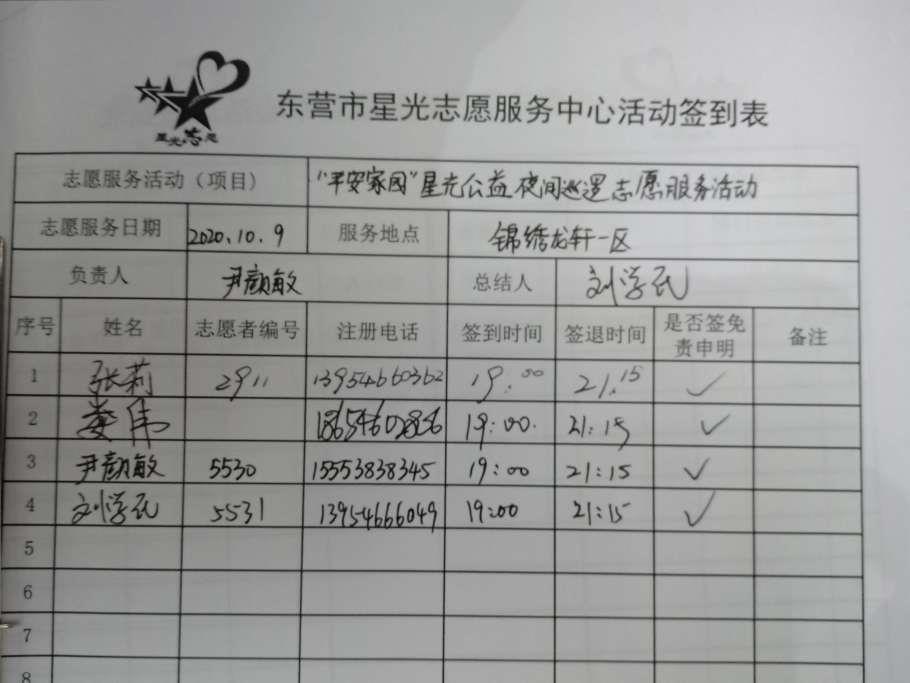 星光志愿
东营市星光志愿服务中心活动签到表
志愿服务活动（项目） "平安家园"星光公益夜间巡逻志愿服务活动
志愿服务日期 2020.10.9 服务地点 锦绣龙轩一区
负责人 尹颜敏 总结人 刘学民
序号 姓名 志愿者编号 注册电话 签到时间 签退时间 是否签免责申明 备注
1 张莉 2911 13954660362 19:00 21:15 ✓
2 娄伟 19:00. 21:15 ✓
3 尹颜敏 5530 15553838345 19:00 21:15 ✓
4 刘学民 5531 13954666049 19:00 21:15 ✓
5
6
7
8